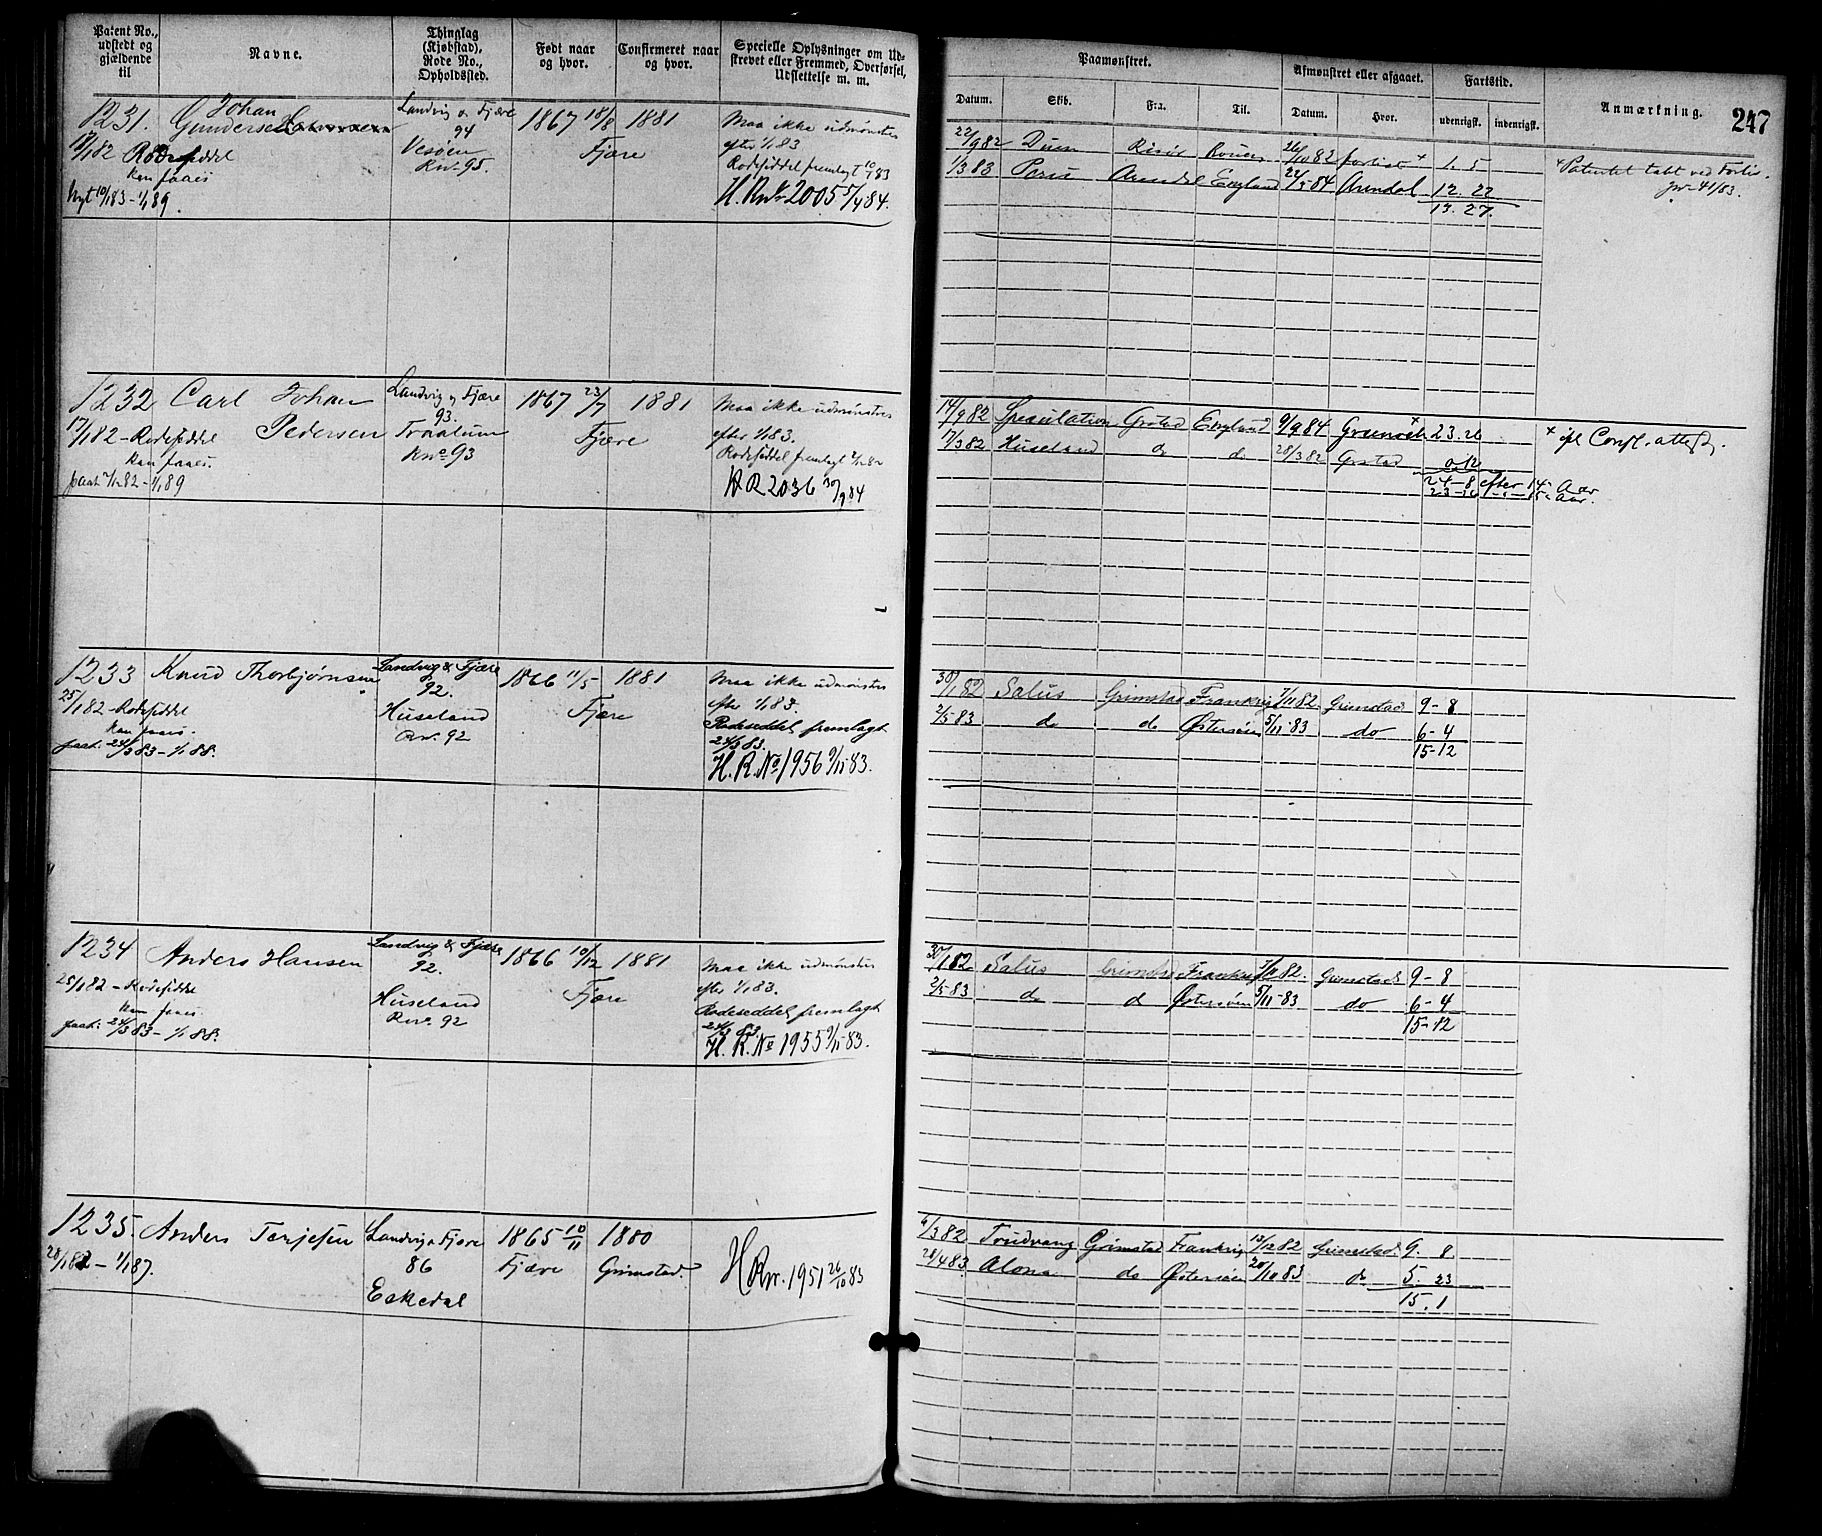 Patent No., udstedt og gjældende til
Navne.
Thinglag (Kjøbstad), Rode No., Opholdssted.
Født naar og hvor.
Confirmeret naar og hvor.
Specielle Oplysninger om Udskrevet eller Fremmed, Overførsel, Udslettelse m. m.
Paamønstret.
Datum.
Skib.
Fra.
Til.
Afmønstret eller afgaaet.
Datum.
Hvor.
Fartstid.
udenrigsk.
indenrigsk.
Anmærkning.
247
1231.
Johan
Gundersen
Landvig o. Fjære
94
Vesøen
Rno. 95.
1867 18/8
Fjære
1881
Maa ikke udmønstres
efter 1/1 83
Rodeseddel fremlagt
H. R No 2005 5/4 84.
Rodeseddel
kan faaes
22/9 82
Risør
26/10 82
1. 5
1/3 83
Paris
Arendal
England
22/5 84
Arendal
12. 22
13. 27.
Patentet tabt ved Forlis.
Jnr 41/83.
1232
Carl Johan
Pedersen
17/1 82 - Rodeseddel
kan faaes.
Landvig o. Fjære
93.
Rno 93
1867 23/7
Fjære
1881
Maa ikke udmønstres
efter 1/1 83.
Rodeseddel fremlagt
HR 2036 30/9 84
14/9 82
Speculation
Grstad
England
9/9 84
Greenock
23. 26
17/3 82
Huseland
do
do
28/3 82
Grstad
0. 12
24-8 efter 14 Aar
23-26 " 15 Aar.
1233
Knud Thorbjørnsen
25/1 82 - Rodeseddel
kan faaes.
faat. 24/3 83 - 1/1 88.
Landvig & Fjære
92.
Huseland
Rno. 92
1866 11/5
Fjære
1881
Maa ikke udmønstres
efter 1/1 83.
Rodeseddel fremlagt
24/3 83.
H. R. No 1956 9/11 83.
30/1 82
Salus
Grimstad
Frankrig
7/11 82.
Grimstad
9-8
2/5 83
do
do
Østersøen
5/11 83
do
6-4
15-12
1234
Anders Hansen
25/1 82 - Rodeseddel
kan faaes.
faat: 24/3 83 - 1/1 88.
Landvig & Fjære
92.
Huseland
Rno. 92
1866 10/12
Fjære
1881
Maa ikke udmønstres
efter 1/1 83.
Rodeseddel fremlagt
24/3 83.
H. R. No 1955 9/11 83.
30/1 82
Salus
Grimstad
Frankrig
7/11 82.
Grimstad
9-8
2/5-83
do
do
Østersøen
5/11-83
do
6-4
15-12
1235.
Anders Terjesen
28/1 82 - 1/1 87.
Landvig o Fjære
86
Eskedal
1865 10/11
Fjære
1880
Grimstad.
H Rno. 1951 26/10 83
6/3 82
Trudvang
Grimstad
Frankrig
13/12 82
Grimstad
9. 8
28/4 83
Alona
do
Østersøen
20/10 83
do
5. 23
15. 1